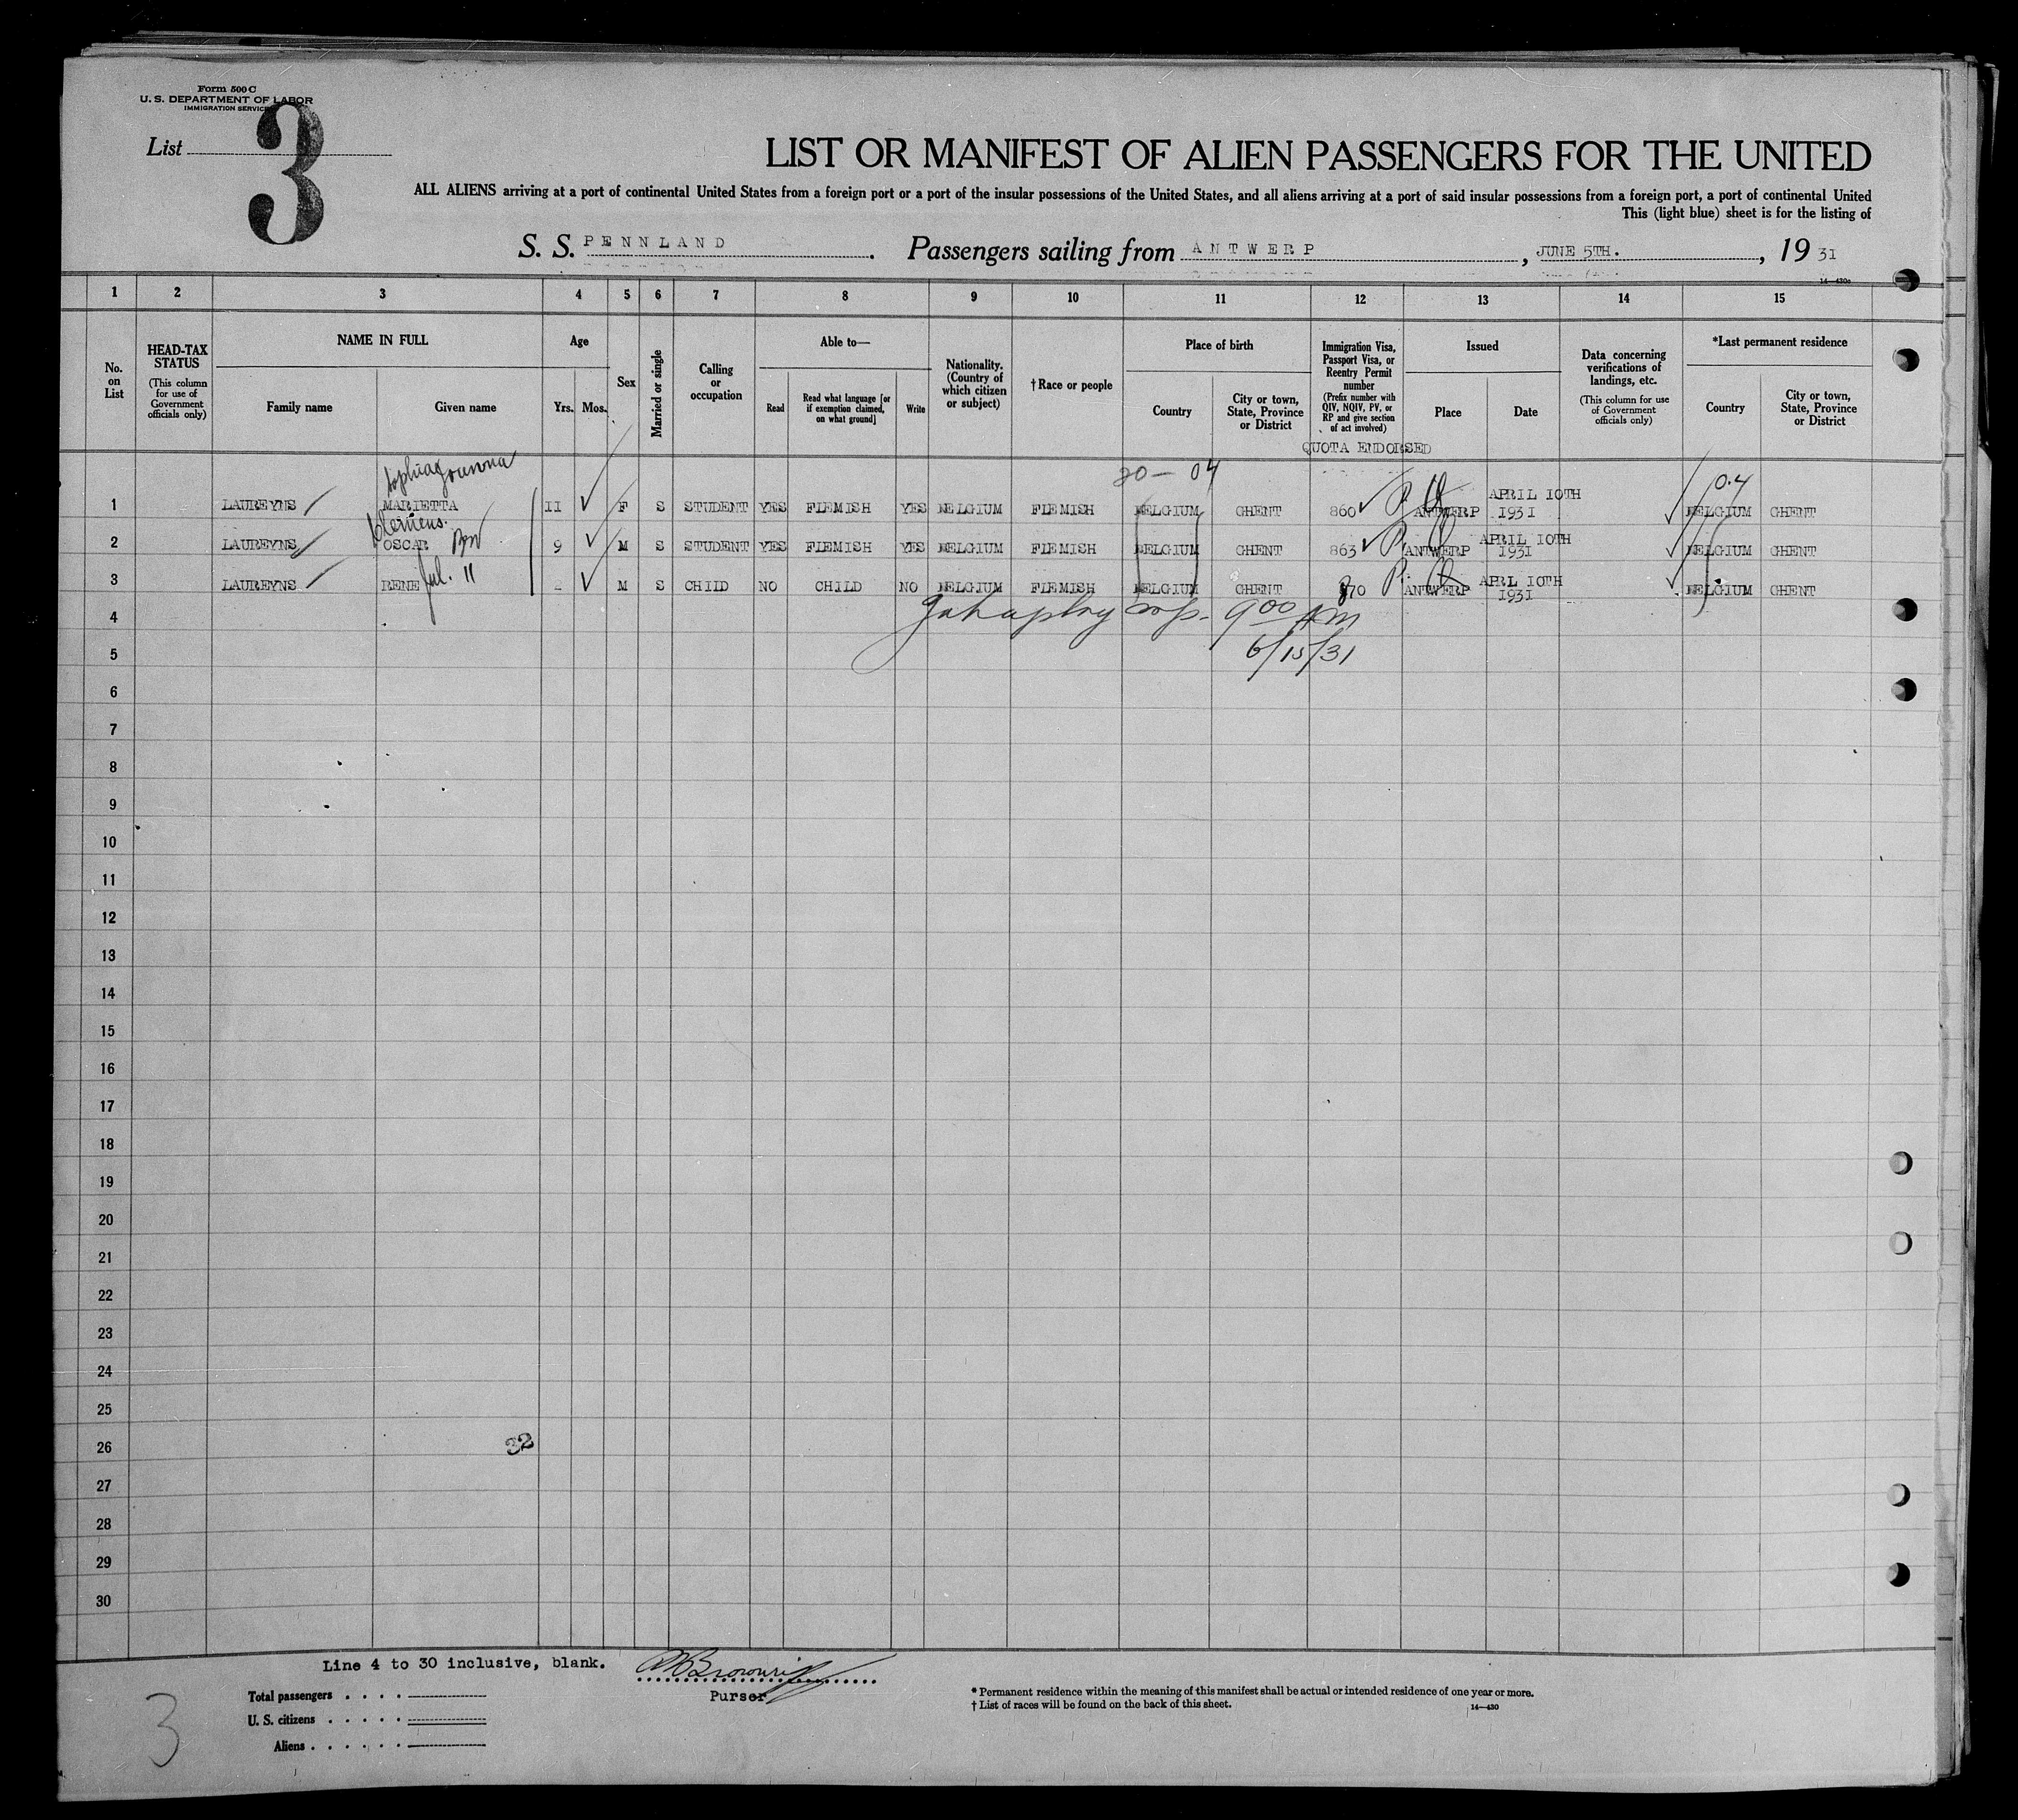 Form 500 C
U. S. DEPARTMENT OF LABOR
IMMIGRATION SERVICE
List
3
LIST OR MANIFEST OF ALIEN PASSENGERS FOR THE UNITED
ALL ALIENS arriving at a port of continental United States from a foreign port or a port of the insular possessions of the United States, and all aliens arriving at a port of said insular possessions from a foreign port, a port of continental United
This (light blue) sheet is for the listing of
S. S. PENNLAND. Passengers sailing from ANTWERP, JUNE 5TH., 19 31
14—430
1 2 3 4 5 6 7 8 9 10 11 12 13 14 15
No. on List
HEAD-TAX STATUS
(This column for use of Government officials only)
NAME IN FULL
Family name
Given name
Age
Yrs. Mos.
Sex
Married or single
Calling or occupation
Able to—
Read
Read what language [or if exemption claimed, on what ground]
Write
Nationality. (Country of which citizen or subject)
† Race or people
Place of birth
Country
City or town, State, Province or District
Immigration Visa, Passport Visa, or Reentry Permit number
(Prefix number with QIV, NQIV, PV, or RP and give section of act involved)
QUOTA ENDORSED
Issued
Place
Date
Data concerning verifications of landings, etc.
(This column for use of Government officials only)
*Last permanent residence
Country
City or town, State, Province or District
20 — 04
04
1 LAUREYNS MARIETTA 11 F S STUDENT YES FLEMISH YES BELGIUM FLEMISH BELGIUM GHENT 860 ANTWERP APRIL 10TH 1931 BELGIUM GHENT
Clemens.
2 LAUREYNS OSCAR 9 M S STUDENT YES FLEMISH YES BELGIUM FLEMISH BELGIUM GHENT 863 ANTWERP APRIL 10TH 1931 BELGIUM GHENT
Jul. 11
3 LAUREYNS RENE – M S CHILD NO CHILD NO BELGIUM FLEMISH BELGIUM GHENT 870 ANTWERP APRL 10TH 1931 BELGIUM GHENT
9 00 AM
4
6/15/31
5
6
7
8
9
10
11
12
13
14
15
16
17
18
19
20
21
22
23
24
25
26
32
27
28
29
30
Line 4 to 30 inclusive, blank.
Purser
Total passengers
U. S. citizens
Aliens
3
* Permanent residence within the meaning of this manifest shall be actual or intended residence of one year or more.
† List of races will be found on the back of this sheet.
14—430